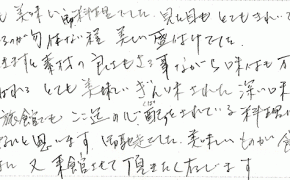 も美味しい御料理でした。見た目もとてもきれいで
るのが勿体ない程 美しい盛付けでした。
ますに素材の良さもさる事ながら味は万
われる とても美味しい ぎん味された 深い味
旅館でも ここ迄の心配をされている料理
ないと思います 御馳走さまでした。美味しいものが食
に 又 来館させて頂きたく存じます